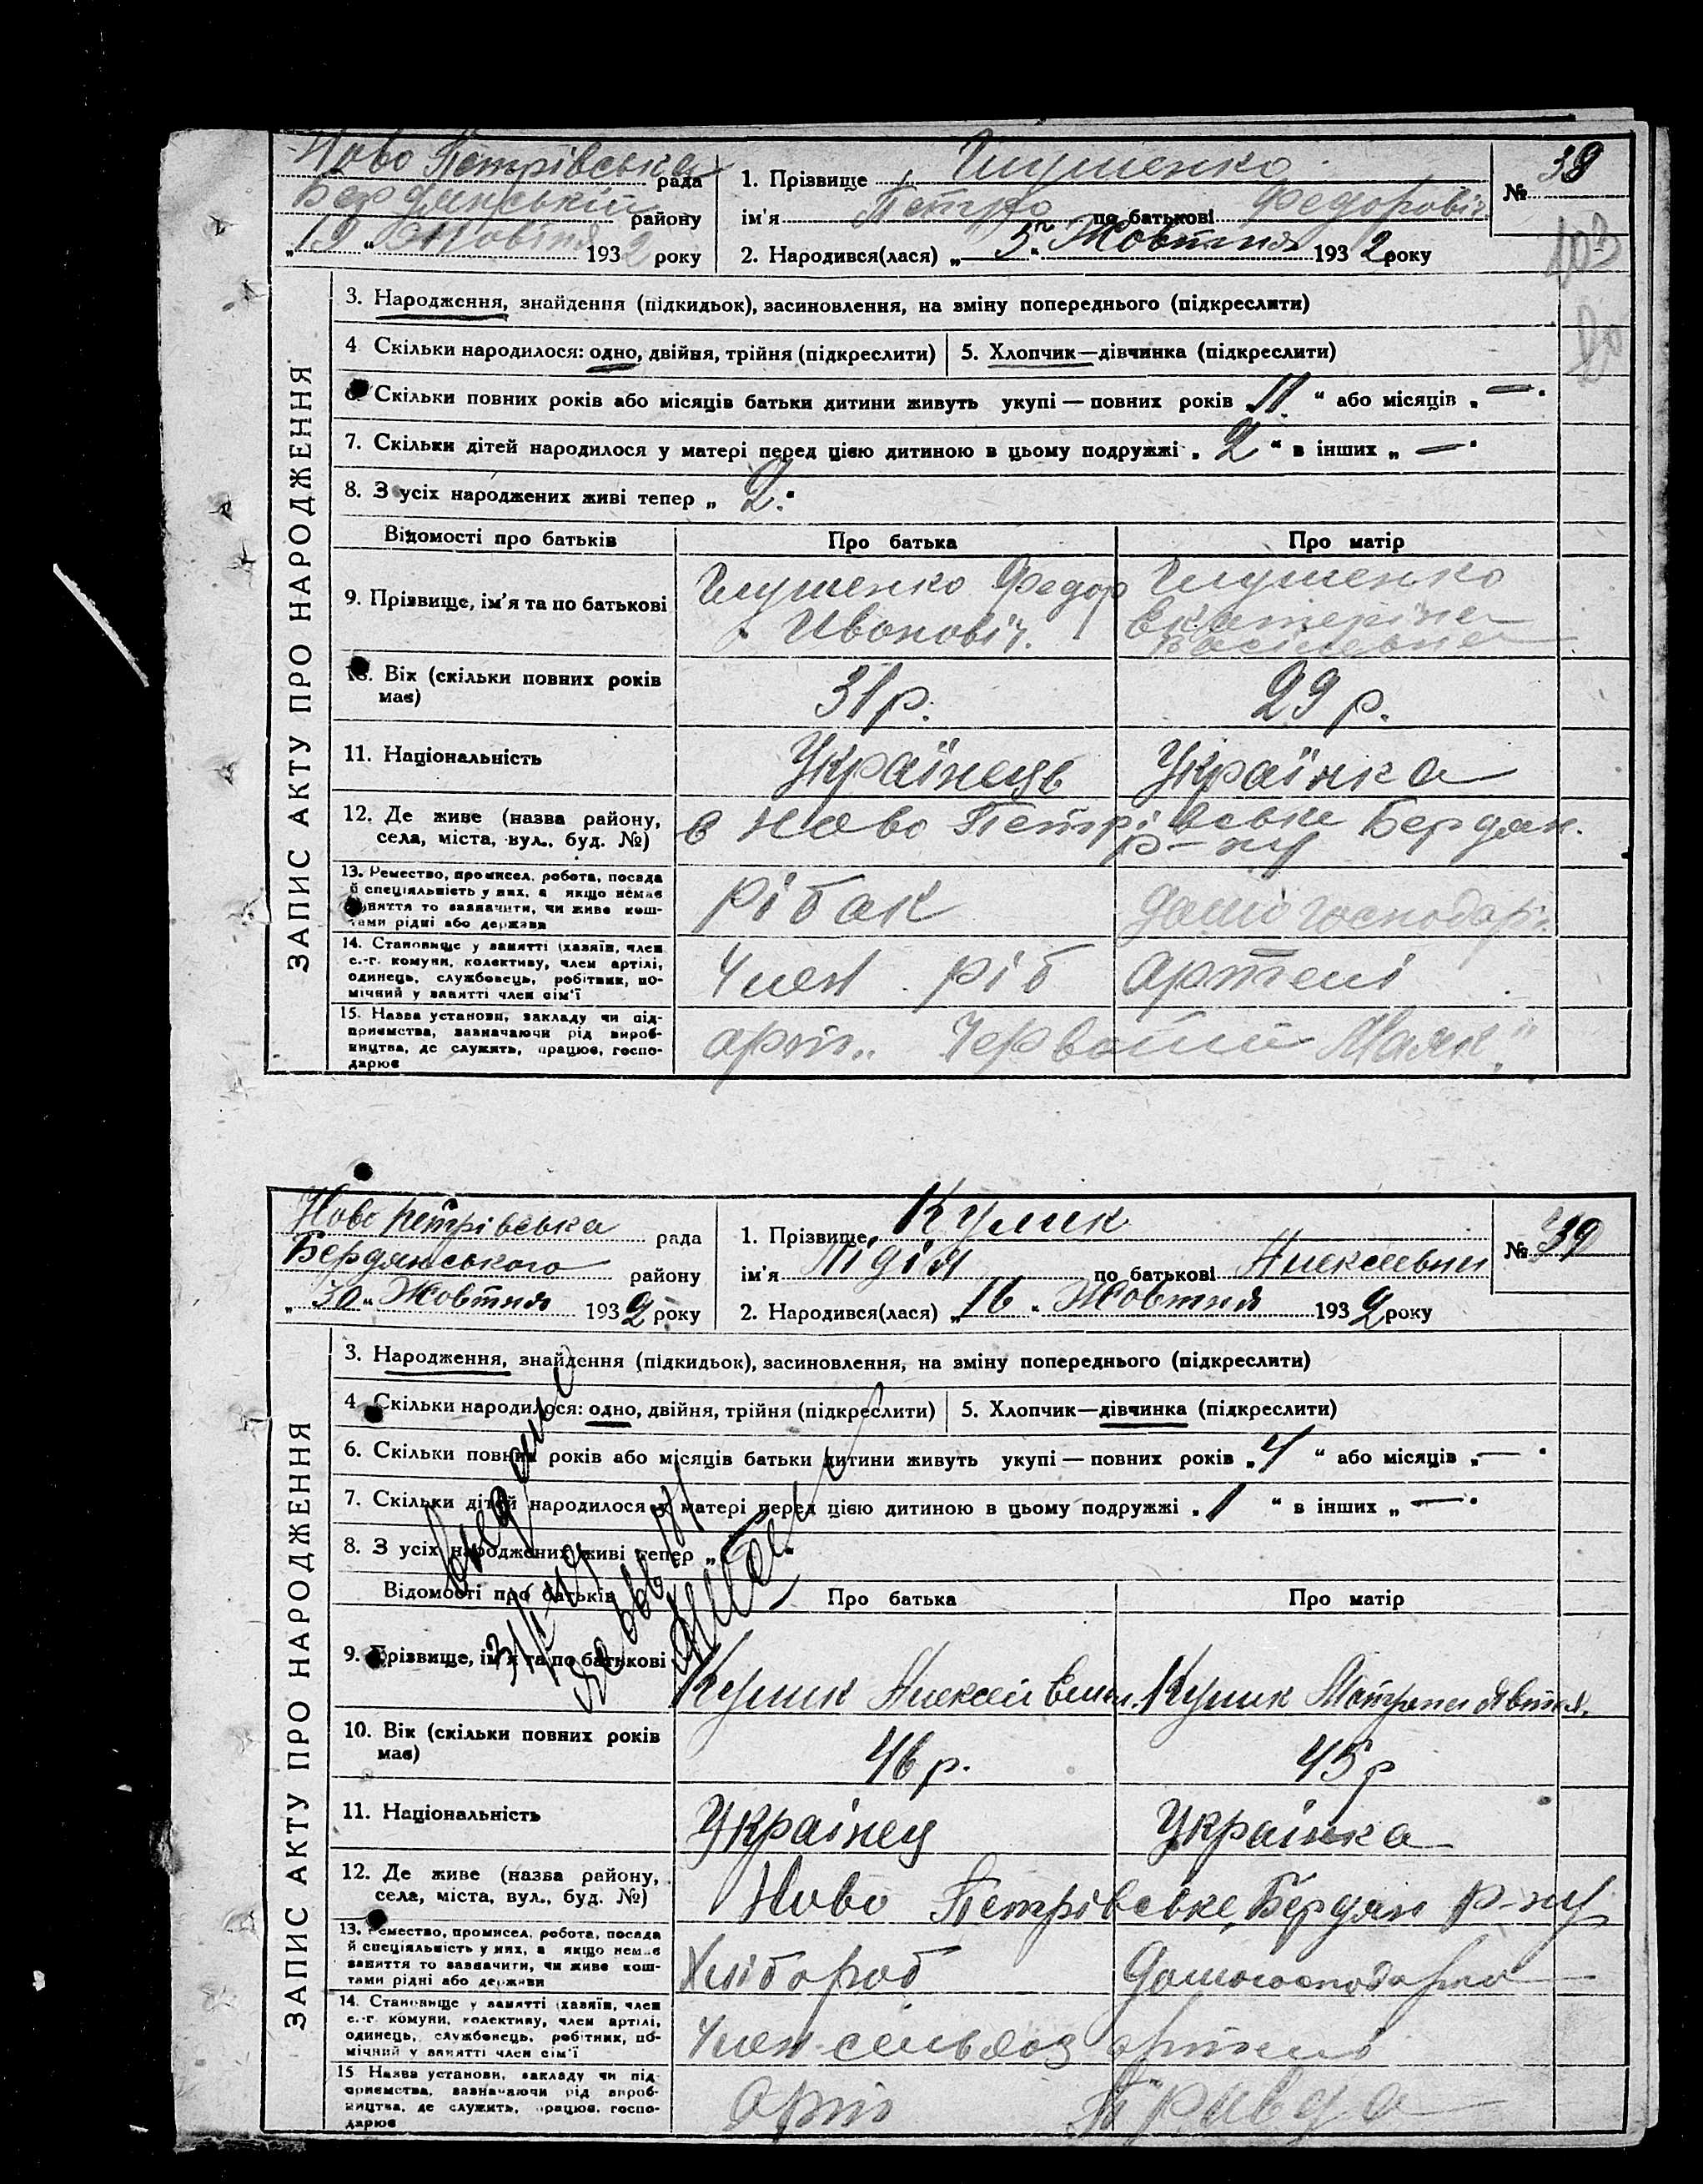 Ново Петрівська рада
Бердянській району
"19" Жовтня 1932 року
1. Прізвище Глушенко
ім'я Петро по батькові Федоровіч
2. Народився(лася) "5" Жовтня 1932 року
№ 38
ЗАПИС АКТУ ПРО НАРОДЖЕННЯ
3. Народження, знайдення (підкидьок), засиновлення, на зміну попереднього (підкреслити)
4 Скільки народилося: одно, двійня, трійня (підкреслити)
5. Хлопчик—дівчинка (підкреслити)
6. Скільки повних років або місяців батьки дитини живуть укупі — повних років "11" або місяців "—"
7. Скільки дітей народилося у матері перед цією дитиною в цьому подружжі "2" в інших "—"
8. З усіх народжених живі тепер "2"
Відомості про батьків Про батька Про матір
9. Прізвище, ім'я та по батькові
Глушенко Федор Ивановіч.
Глушенко Екатеріна Васілевна
10. Вік (скільки повних років має) 31 р. 29 р.
11. Національність Українець Українка
12. Де живе (назва району, села, міста, вул., буд. №)
в Ново Петрівське Бердян. р-ну
13. Ремество, промисел, робота, посада й спеціяльність у них, а якщо немає заняття то зазначити, чи живе коштами рідні або держави
рібак
домогосподарк.
14. Становище у занятті (хазяїн, член с.-г. комуни, колективу, член артілі, одинець, службовець, робітник, помічний у занятті член сім'ї
Член ріб артелі
15. Назва установи, закладу чи підприємства, зазначаючи рід виробництва, де служить, працює, господарює
арт. "Червоний Маяк"
Ново петрівська рада
Бердянського району
"30" Жовтня 1932 року
1. Прізвище Кулик
ім'я Лідія по батькові Алексеевна
2. Народився(лася) "16" Жовтня 1932 року
№ 39
ЗАПИС АКТУ ПРО НАРОДЖЕННЯ
3. Народження, знайдення (підкидьок), засиновлення, на зміну попереднього (підкреслити)
4. Скільки народилося: одно, двійня, трійня (підкреслити)
5. Хлопчик—дівчинка (підкреслити)
6. Скільки повних років або місяців батьки дитини живуть укупі — повних років "4" або місяців "—"
7. Скільки дітей народилося у матері перед цією дитиною в цьому подружжі "1" в інших "—"
8. З усіх народжених живі тепер
Відомості про батьків Про батька Про матір
9. Прізвище, ім'я та по батькові
Кулик Алексей
Кулик Матрена
10. Вік (скільки повних років має) 46 р. 45 р
11. Національність Українец Українка
12. Де живе (назва району, села, міста, вул., буд. №)
Ново Петрівське, Бердян р-ну
13. Ремество, промисел, робота, посада й спеціяльність у них, а якщо немає заняття то зазначити, чи живе коштами рідні або держави
Хлібороб
домогосподарка
14. Становище у занятті (хазяїн, член с.-г. комуни, колективу, член артілі, одинець, службовець, робітник, помічний у занятті член сім'ї
Член сельхоз артелі
15 Назва установи, закладу чи підприємства, зазначаючи рід виробництва, де служить, працює, господарює
Арт Правда